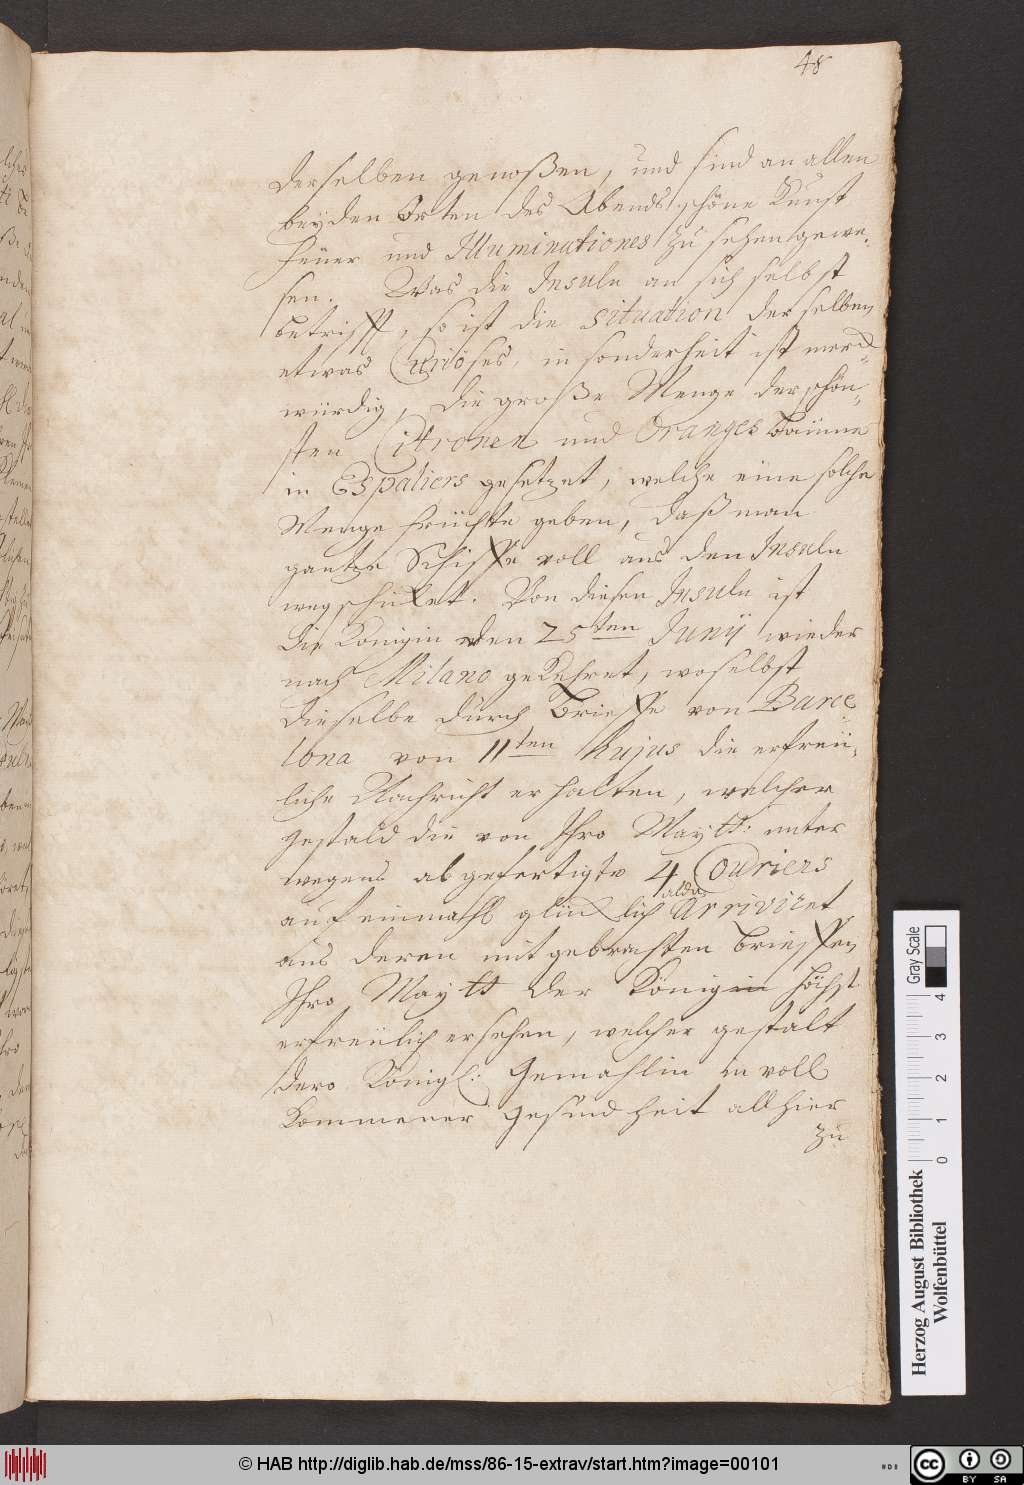 48
derselben genoßen, und sind an allen
beyden Orten des Abends schöne Kunst
feüer und Illuminationes zu sehen gewe,
sen. Was die Insuln an sich selbst
betrifft, so ist die situation derselben
etwas Curiöses, in sonderheit ist merck,
würdig, die große Menge der schön,
sten Citronen und Oranges Bäüme
in Espaliers gesetzet, welche eine solche
Menge früchte geben, daß man
gantze Schiffe voll aus den Insuln
wegschicket. Von diesen Insuln ist
die Königin den 25ten Junij wieder
nach Milano gekehret, woselbst
dieselbe durch Brieffe von Barce
lona von 11ten hujus die erfreü,
liche Nachricht erhalten, welcher
gestald die von Ihro Maytt: unter
wegens abgefertigte 4 Couriers
alda
auf einmahl glücklich arriviret
aus deren mitgebrachten Brieffen
Ihro Maytt der König höchst
erfreülich ersehen, welcher gestalt
dero Königl: Gemahlin in voll
kommener gesundheit allhier
zu
Gray Scale
0 1 2 3 4
Herzog August Bibliothek
Wolfenbüttel
© HAB http://diglib.hab.de/mss/86-15-extrav/start.htm?image=00101
cc BY SA